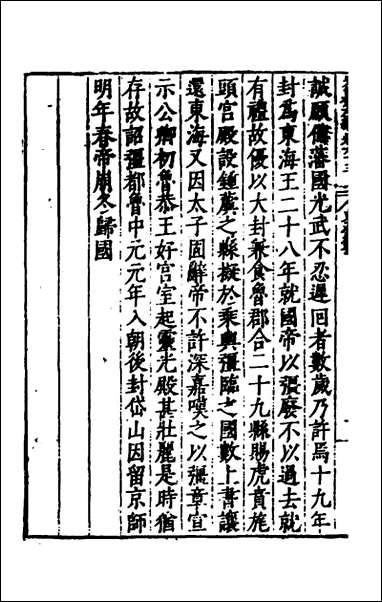 誠願備藩國光武不忍遲回者數歲乃許焉十九年
封爲東海王二十八年就國帝以彊廢不以過去就
有禮故優以大封兼食魯郡合二十九縣賜虎賁旄
頭宮殿設鍾虡之縣擬於乘輿彊臨之國數上書讓
還東海又因太子固辭帝不許深嘉嘆之以彊章宣
示公卿初魯恭王好宮室起靈光殿甚壯麗是時猶
存故詔彊都魯中元元年入朝後封岱山因留京師
明年春帝崩冬歸國